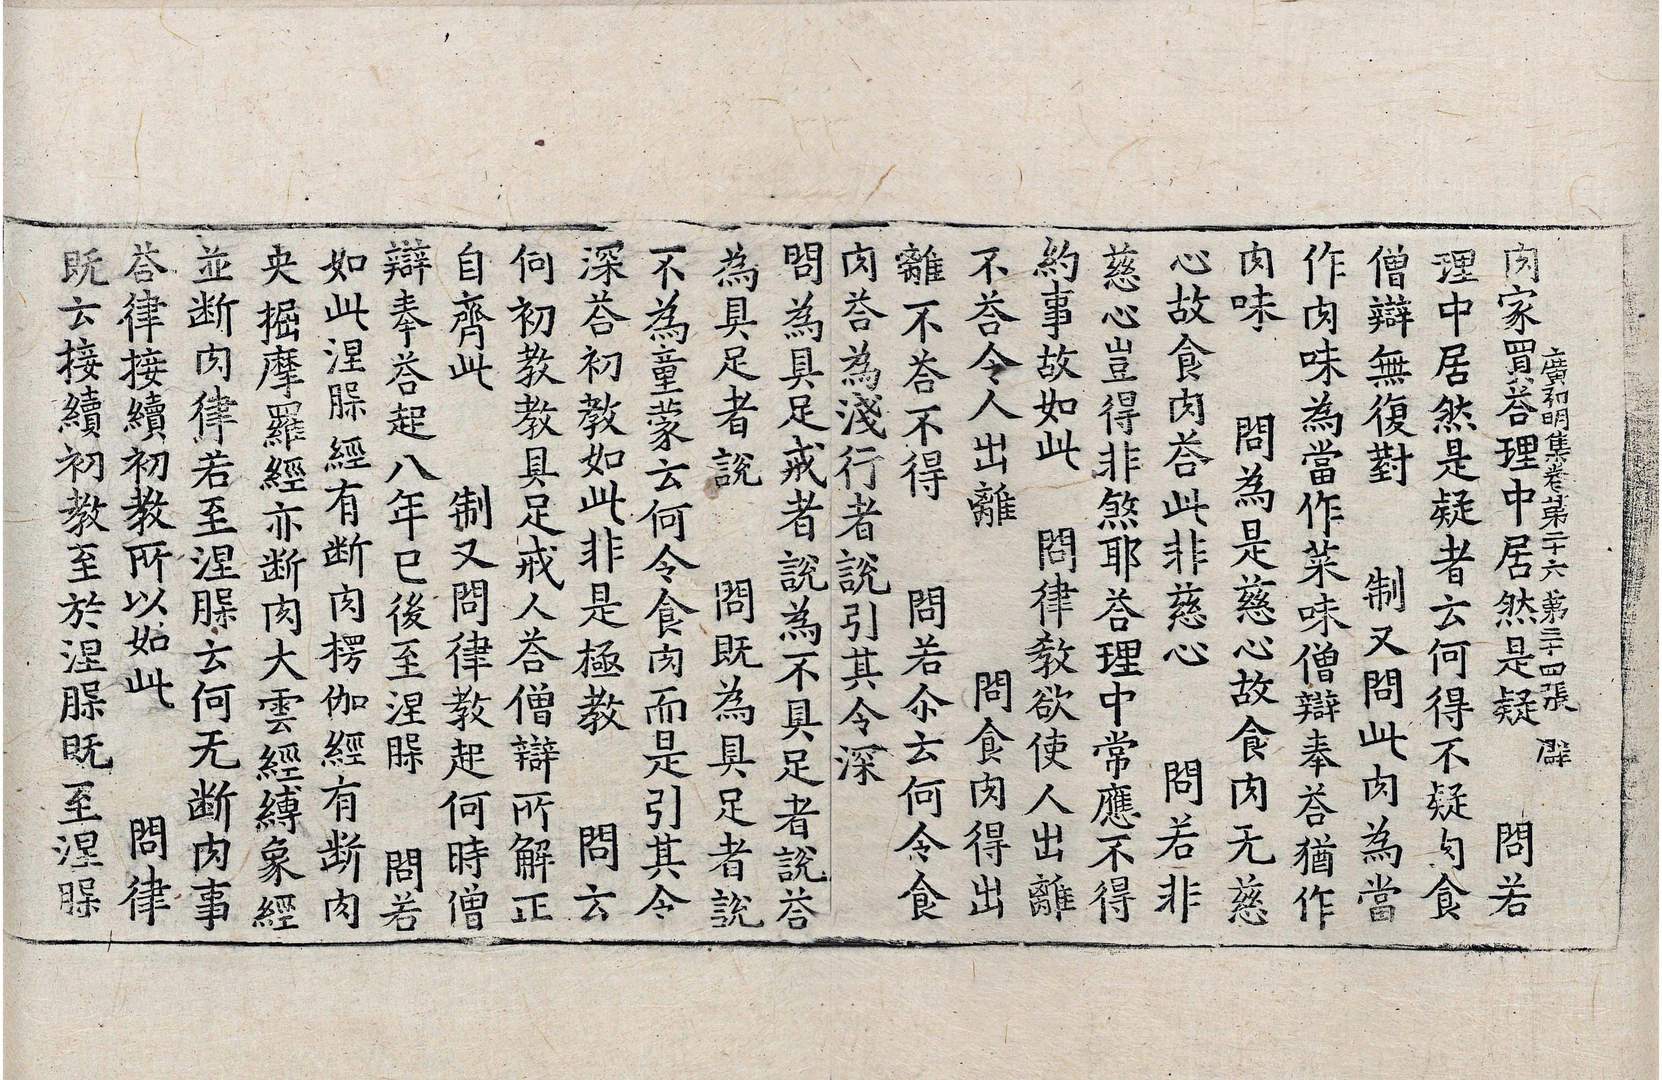 廣弘明集卷第二十六第三十四張 辟
肉家買荅理中居然是疑 問若
理中居然是疑者云何得不疑肉食
僧辯無復對 制又問此肉為當
作肉味為當作菜味僧辯奉荅猶作
肉味 問為是慈心故食肉无慈
心故食肉荅此非慈心 問若非
慈心豈得非煞耶荅理中常應不得
約事故如此 問律教欲使人出離
不荅令人出離 問食肉得出
離不荅不得 問若尒云何令食
肉荅為淺行者說引其令深
問為具足戒者說為不具足者說荅
為具足者說 問既為具足者說
不為童蒙云何令食肉而是引其令
深荅初教如此非是極教 問云
何初教教具足戒人荅僧辯所解正
自齊此 制又問律教起何時僧
辯奉荅起八年已後至涅槃 問若
如此涅槃經有断肉楞伽經有断肉
央掘摩羅經亦断肉大雲經縛象經
並断肉律若至涅槃云何无断肉事
荅律接續初教所以如此 問律
既云接續初教至於涅槃既至涅槃